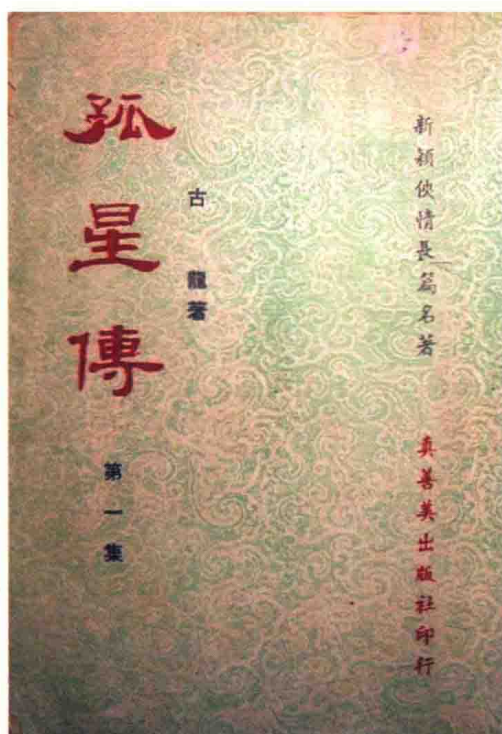 新穎俠情長篇名著
真善美出版社印行
古龍著
孤星傳
第一集